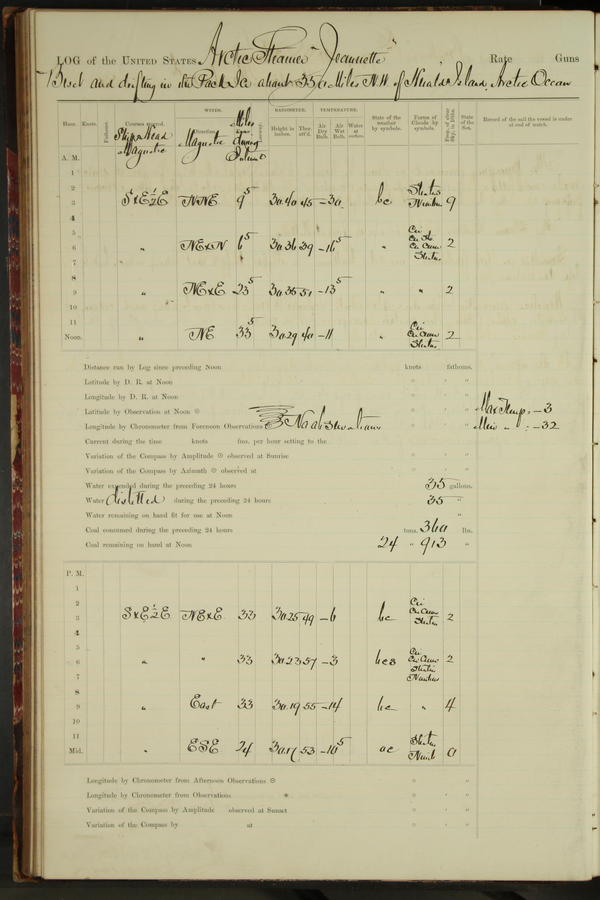 LOG of the UNITED STATES Arctic Steamer "Jeannette" Rate Guns
Beset and drifting in the Pack Ice about 350 Miles N.W. of Herald Island, Arctic Ocean
WINDS. BAROMETER. TEMPERATURE.
Hour. Knots. Fathoms. Courses steered. Direction. Height in inches. Ther. att'd. Air Dry Bulb. Air Wet Bulb. Water at surface. State of the weather by symbols. Forms of Clouds by symbols. Prop. of clear Sky, in 10ths. State of the Sea. Record of the sail the vessel is under at end of watch.
Ship's Head Magnetic Magnetic Miles during
A. M.
1
2
3 S x E ½ E NNE 9 5 30.40 45 -30 bc Stratus 9
4
5
6 " NE x N 6 5 30.36 39 -16 5 " Cir Cir Cum Stratus 2
7
8
9 " NE x E 23 5 30.35 51 -13 5 " " 2
10
11
Noon. " NE 33 5 30.29 40 -11 " Cir Cir Cum Stratus 2
Distance run by Log since preceding Noon knots fathoms.
Latitude by D. R. at Noon ° ' "
Longitude by D. R. at Noon ° ' "
Latitude by Observation at Noon ☉ ° ' " Max Temp. : -3
Longitude by Chronometer from Forenoon Observations No observations ° ' " Min " : -32
Current during the time knots fms. per hour setting to the
Variation of the Compass by Amplitude ☉ observed at Sunrise ° ' "
Variation of the Compass by Azimuth ☉ observed at ° ' "
Water expended during the preceding 24 hours 35 gallons.
Water distilled during the preceding 24 hours 35 "
Water remaining on hand fit for use at Noon "
Coal consumed during the preceding 24 hours tons. 360 lbs.
Coal remaining on hand at Noon 24 " 913 "
P. M.
1
2
3 S x E ½ E NE x E 33 30.25 49 -6 bc Cir Cir Cum Stratus 2
4
5
6 " " 33 30.23 57 -3 bcs Cir Cir Cum Stratus Nimbus 2
7
8
9 " East 33 30.19 55 -14 bc " 4
10
11
Mid. " ESE 24 30.17 53 -10 5 oc Stratus Nimb 0
Longitude by Chronometer from Afternoon Observations ☉ ° ' "
Longitude by Chronometer from Observations * ° ' "
Variation of the Compass by Amplitude observed at Sunset ° ' "
Variation of the Compass by at ° ' "